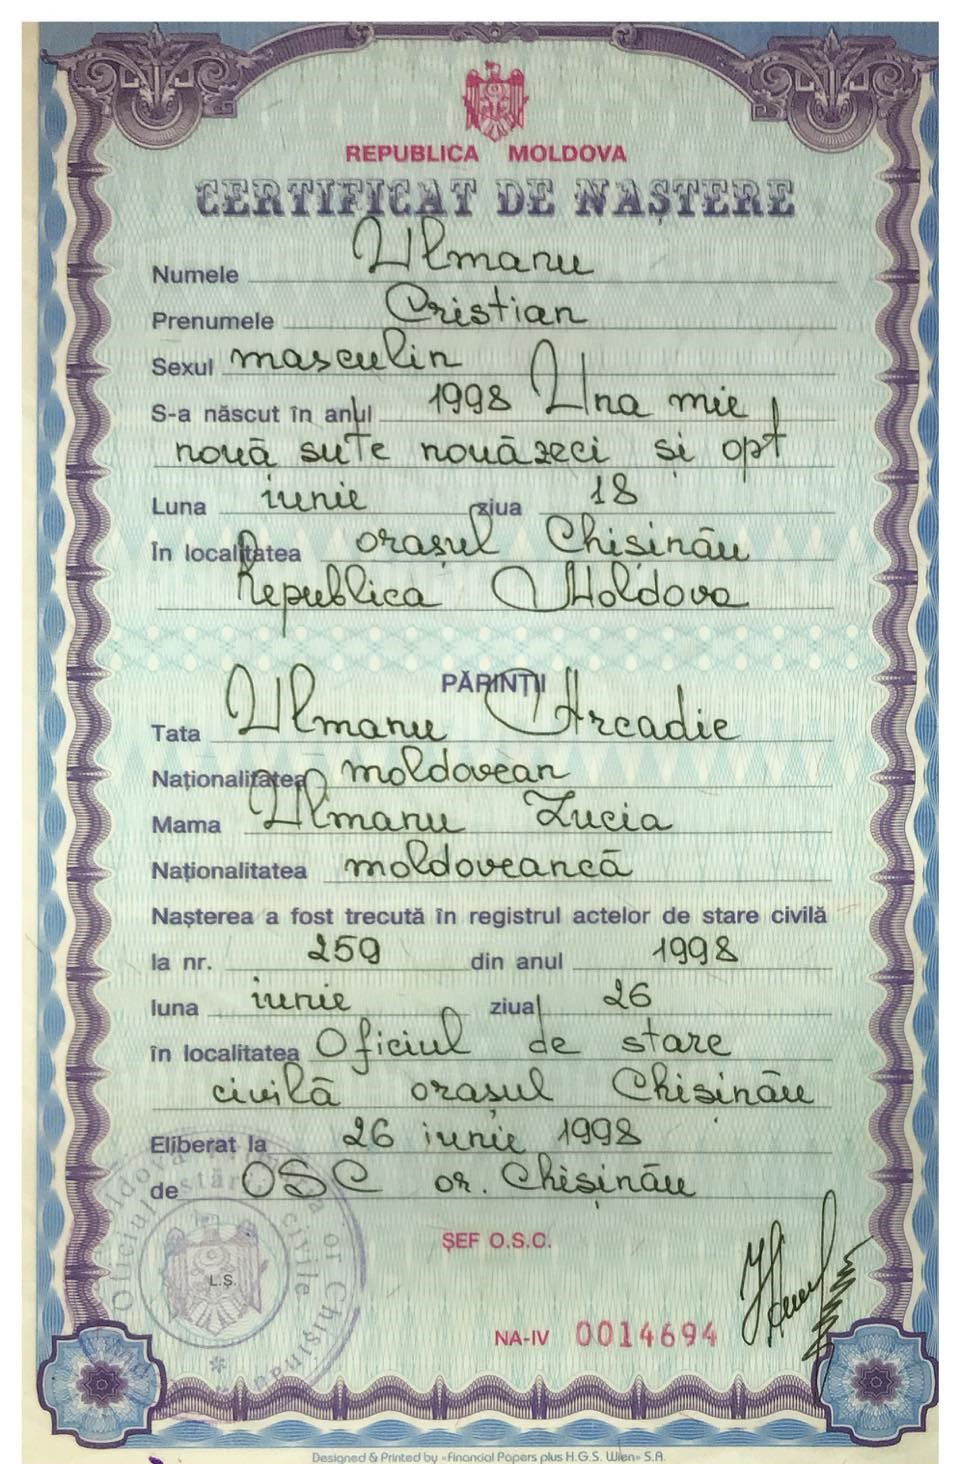 REPUBLICA MOLDOVA
CERTIFICAT DE NAȘTERE
Numele Ulmanu
Prenumele Cristian
Sexul masculin
S-a născut în anul 1998 Una mie
nouă sute nouăzeci și opt
Luna iunie ziua 18
În localitatea orașul Chișinău
Republica Moldova
PĂRINȚII
Tata Ulmanu Arcadie
Naționalitatea moldovean
Mama Ulmanu Lucia
Naționalitatea moldoveancă
Nașterea a fost trecută în registrul actelor de stare civilă
la nr. 259 din anul 1998
luna iunie ziua 26
în localitatea Oficiul de stare
civilă orașul Chișinău
Eliberat la 26 iunie 1998
de OSC or. Chișinău
ȘEF O.S.C.
L.Ș.
NA-IV 0014694
Designed & Printed by «Financial Papers plus H.G.S. Wien» S.A.